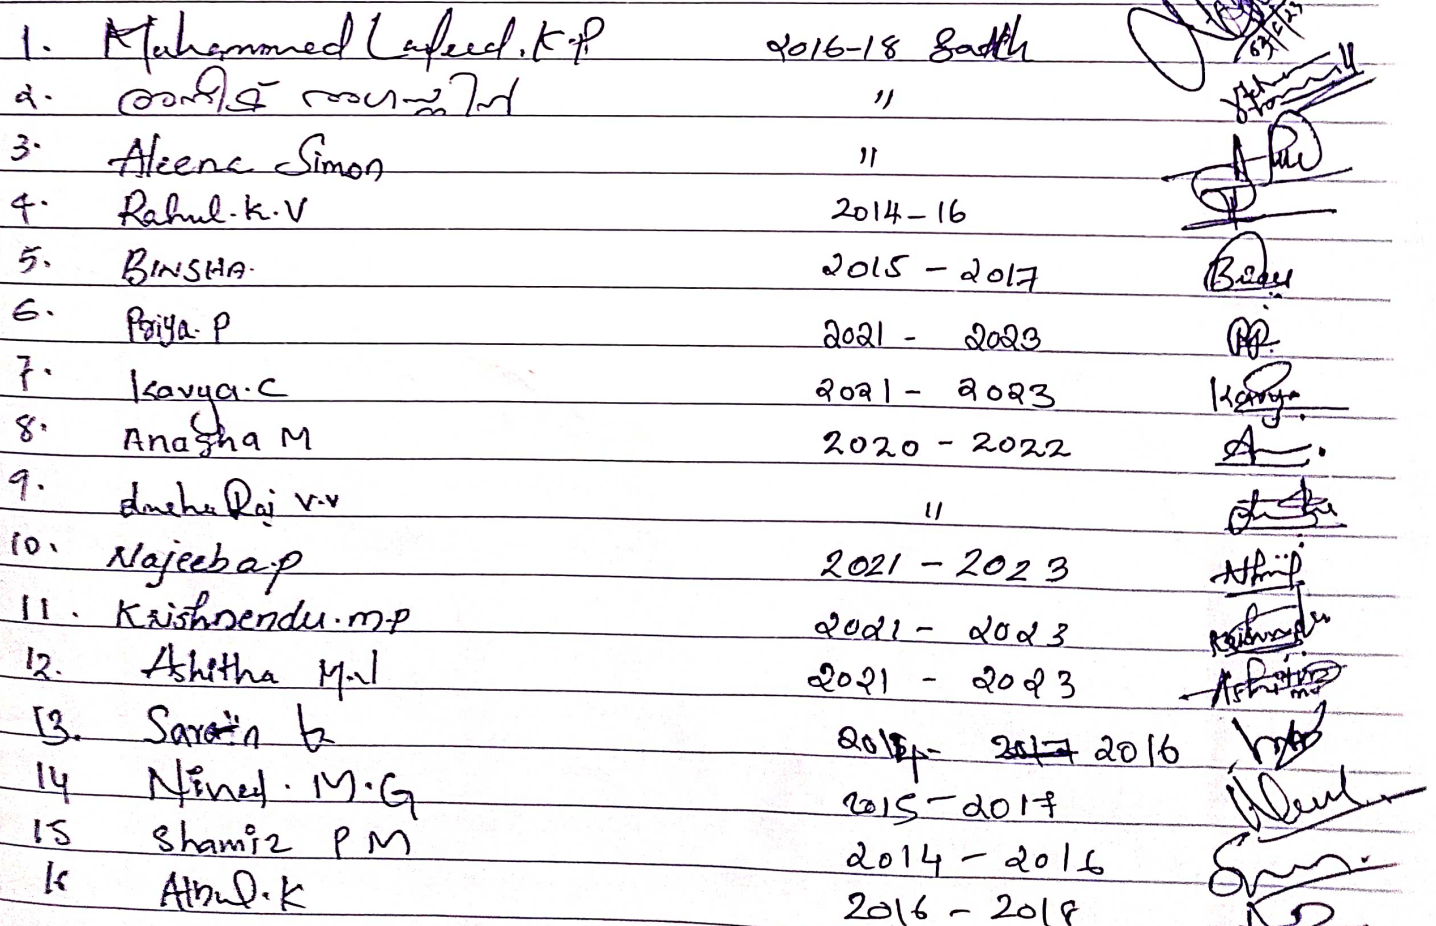 1. Muhammed Lafeed. K.P 2016-18 Batch 03/6/23
2. "
3. Aleena Simon "
4. Rahul. K. V 2014-16
5. BINSHA. 2015 - 2017
6. Priya. P 2021 - 2023 PP.
7. Kavya. C 2021 - 2023 Kavya
8. Anagha M 2020 - 2022
9. Raj v.v "
10. Najeeba.p 2021 - 2023
11. Krishnendu. m.p 2021 - 2023 Krishnendu
12. Ashitha M.V 2021 - 2023 Ashitha
13. Sarain k 2014- 2017 2016
14 Nined. M.G 2015 - 2017
15 Shamiz P M 2014 - 2016
16 Athul. K 2016 - 2018